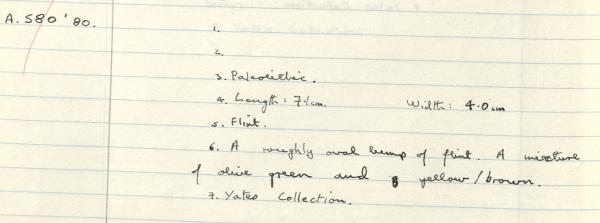 A. 580 '80.
1.
2.
3. Paleolithic.
4. Length: 7.1cm. Width: 4.0cm
5. Flint.
6. A roughly oval lump of flint. A mixture
of olive green and yellow/brown.
7. Yates Collection.